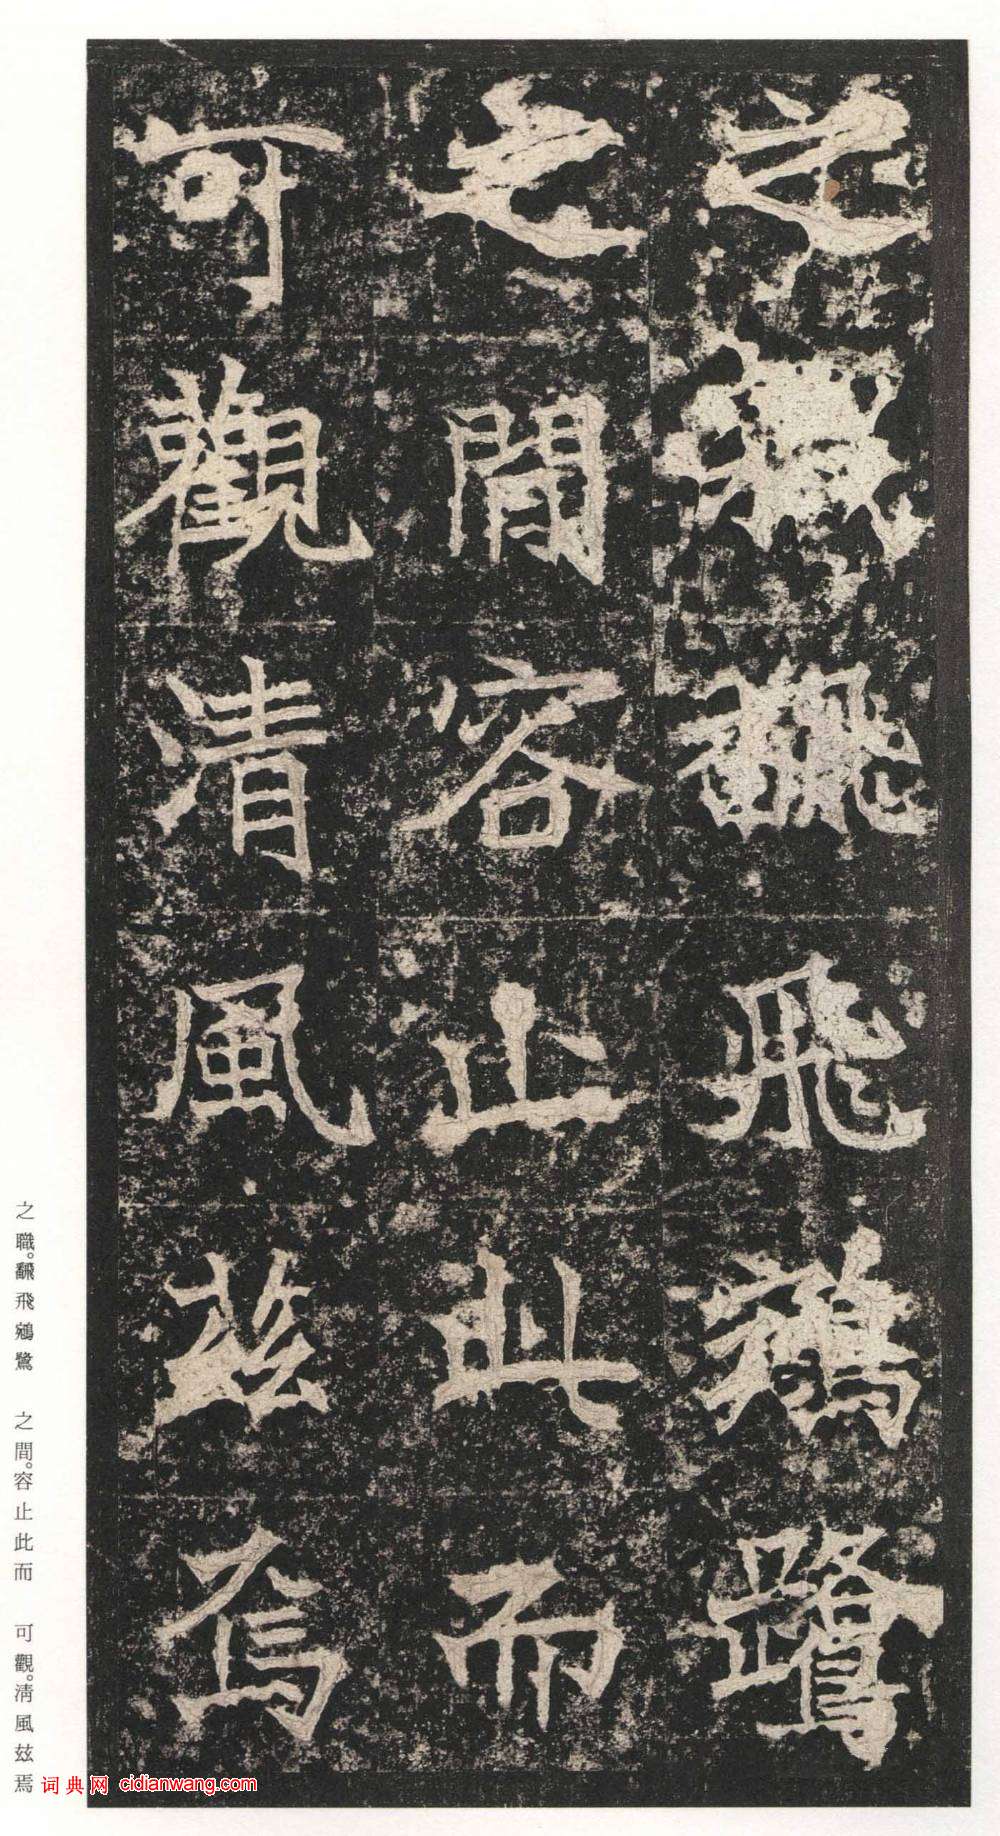 之職飜飛鵷鷺
之間容止此而
可觀清風茲焉
之職。飜飛鵷鷺 之間。容止此而 可觀。清風茲焉
词典网 cidianwang.com